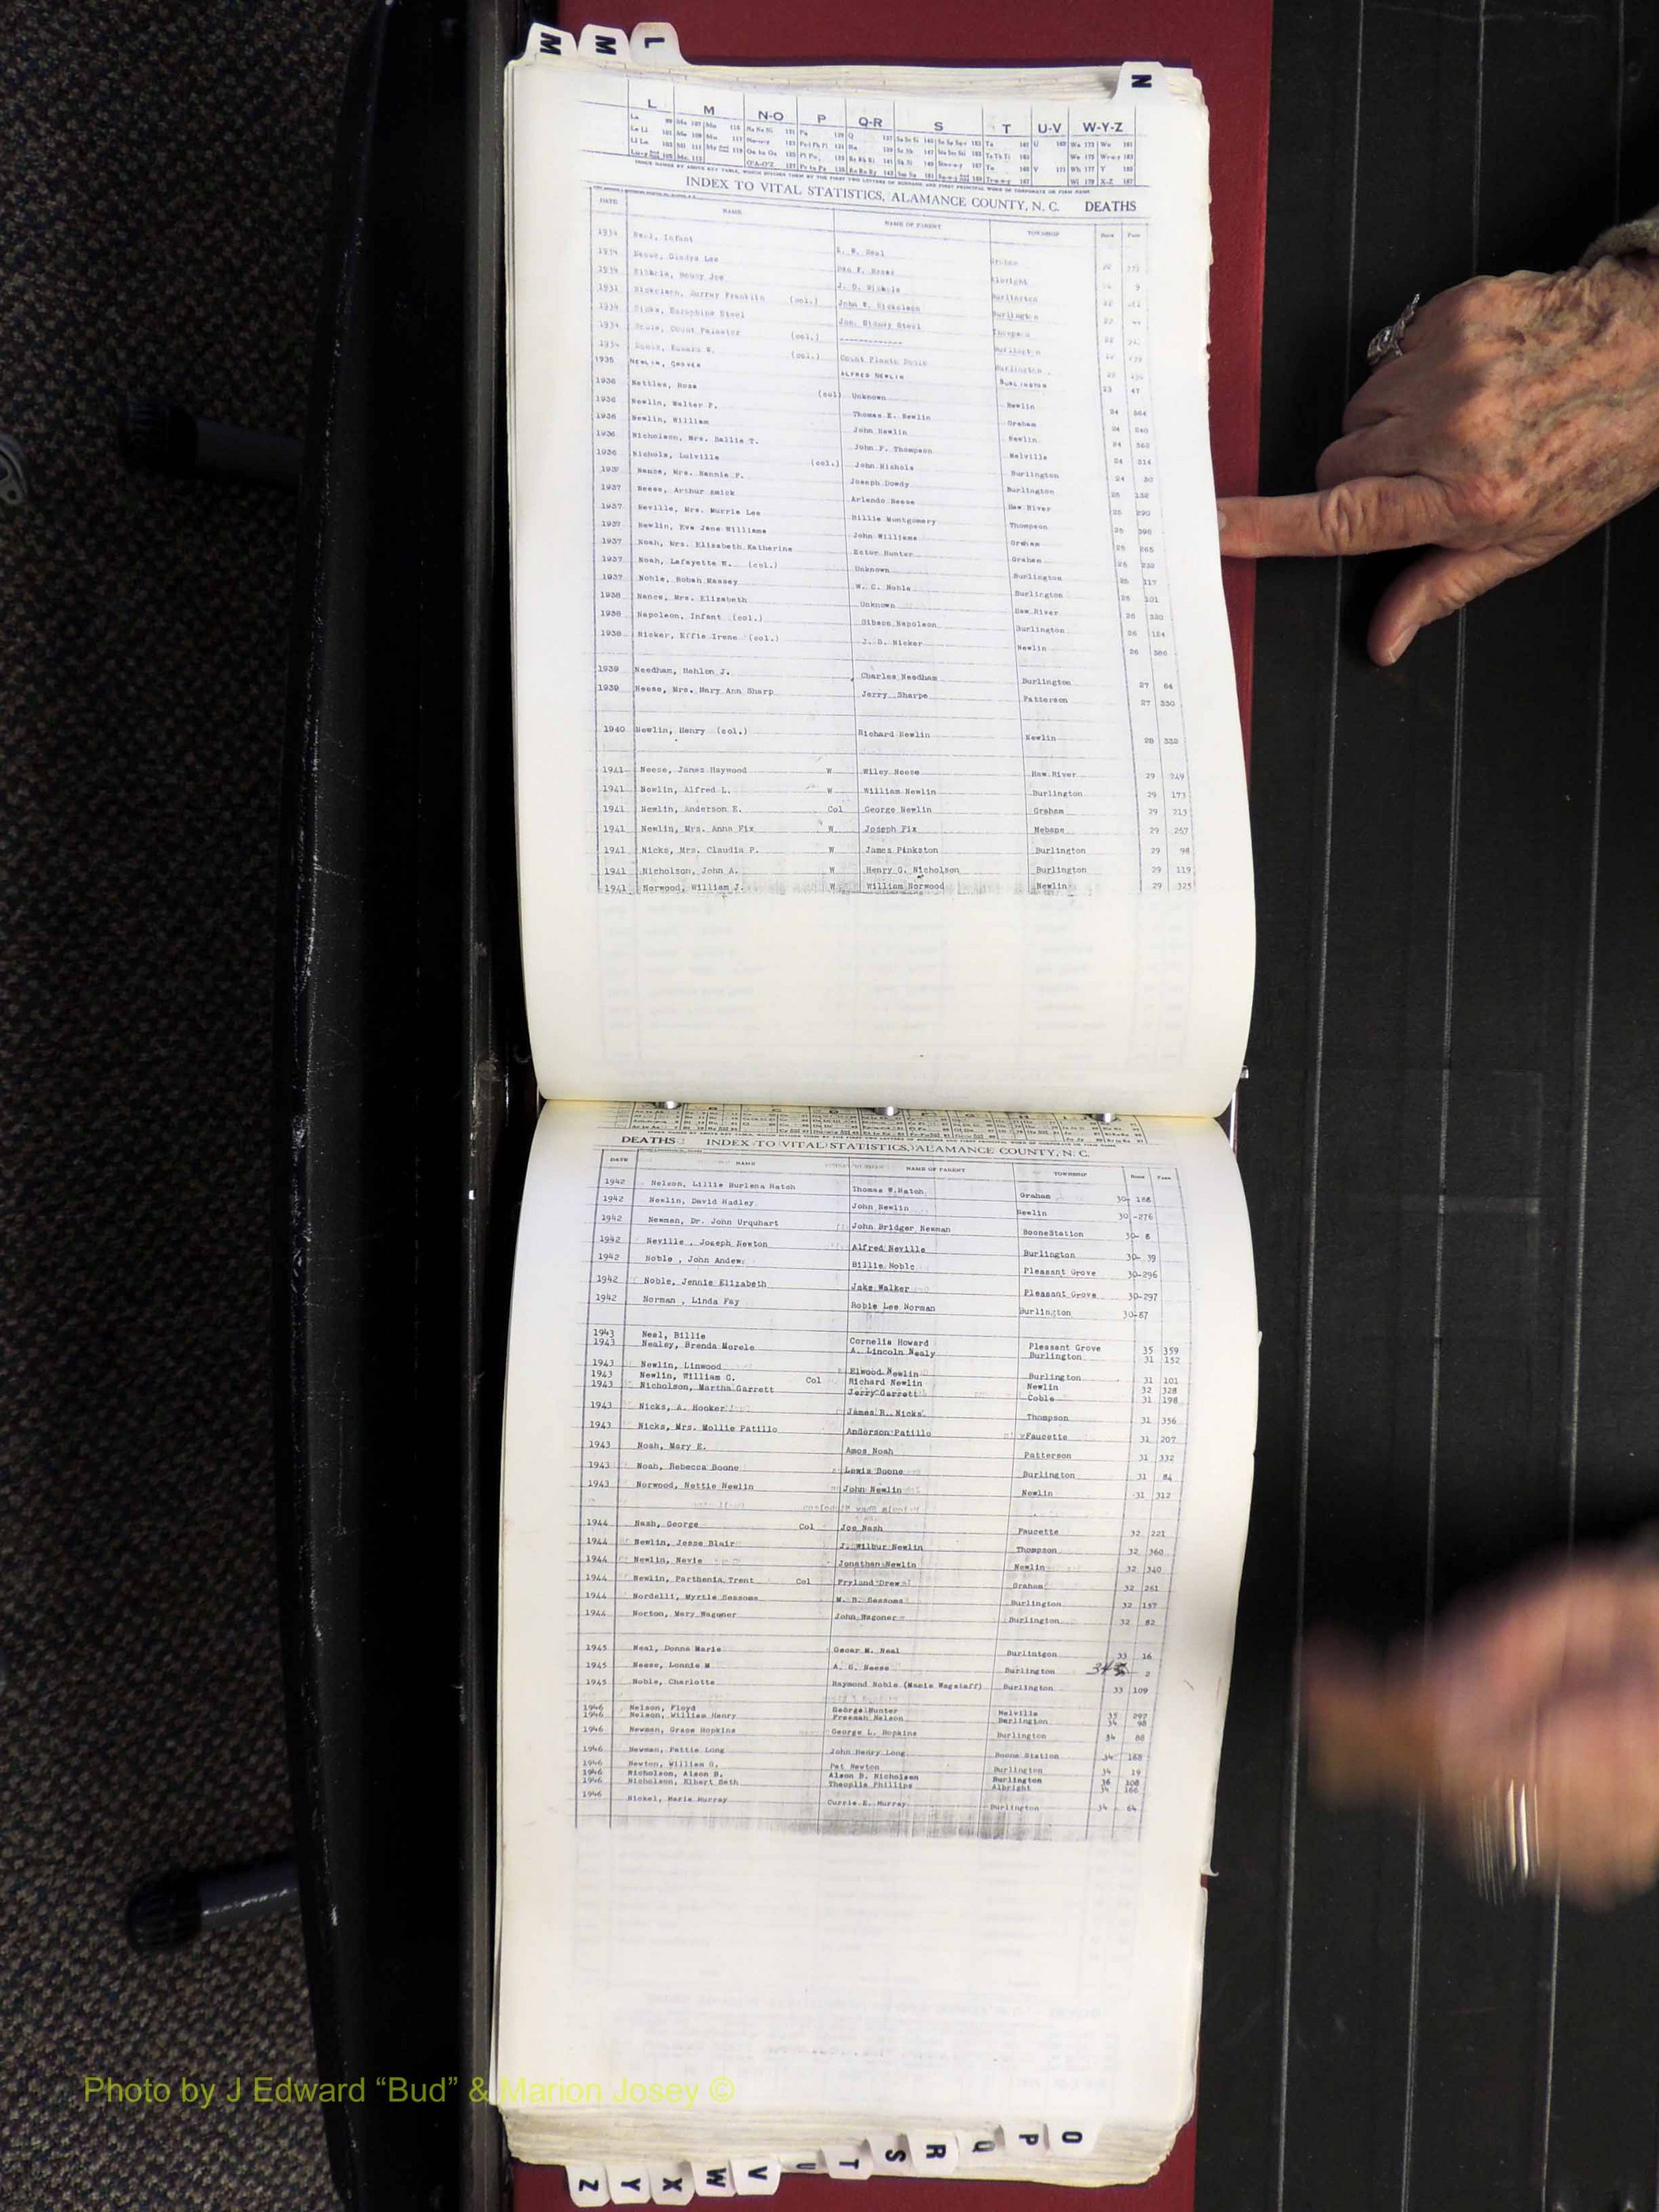 M M L
N
L M N-O P Q-R S T U-V W-Y-Z
INDEX TO VITAL STATISTICS, ALAMANCE COUNTY, N. C. DEATHS
DATE NAME NAME OF PARENT TOWNSHIP Book Page
1934 Neal, Infant Neal Graham
1934 Neese, Gladys Lee Neese Albright 9
1934 Burlington
1931 Nickelson, Murray Franklin (col.) John W. Nickelson Burlington
1934 Steel Thompson
1934 (col.) ------------- Burlington
1934 (col.) Burlington
1935 NEWLIN, GROVER ALFRED NEWLIN BURLINGTON 23 47
1936 Nettles, Rosa (col) Unknown Newlin 24 564
1936 Newlin, Walter P. Thomas E. Newlin Graham 24 240
1936 Newlin, William John Newlin Newlin 24 362
1936 Nicholson, Mrs. Sallie T. John F. Thompson Melville 24 314
1936 Nichols, Luiville (col.) John Nichols Burlington 24 30
1937 Nance, Mrs. Nannie P. Joseph Dowdy Burlington 25 132
1937 Neese, Arthur Emick Arlendo Neese Haw River 25 290
1937 Neville, Mrs. Murrie Lee Billie Montgomery Thompson 25 396
1937 Newlin, Eva Jane Williams John Williams Graham 25 265
1937 Noah, Mrs. Elizabeth Katherine Ector Hunter Graham 25 232
1937 Noah, Lafayette W. (col.) Unknown Burlington 25 117
1937 Noble, Robah Massey W. C. Noble Burlington 25 101
1938 Nance, Mrs. Elizabeth Unknown Haw River 26 320
1938 Napoleon, Infant (col.) Gibson Napoleon Burlington 26 124
1938 Nicker, Effie Irene (col.) J. D. Nicker Newlin 26 386
1939 Needham, Mahlon J. Charles Needham Burlington 27 64
1939 Neese, Mrs. Mary Ann Sharp Jerry Sharpe Patterson 27 330
1940 Newlin, Henry (col.) Richard Newlin Newlin 28 332
1941 Neese, James Haywood W Wiley Neese Haw River 29 249
1941 Newlin, Alfred L. W William Newlin Burlington 29 173
1941 Newlin, Anderson E. Col George Newlin Graham 29 213
1941 Newlin, Mrs. Anna Fix W Joseph Fix Mebane 29 267
1941 Nicks, Mrs. Claudia P. W James Pinkston Burlington 29 98
1941 Nicholson, John A. W Henry G. Nicholson Burlington 29 119
1941 Norwood, William J. W William Norwood Newlin 29 325
DEATHS INDEX TO VITAL STATISTICS, ALAMANCE COUNTY, N. C.
DATE NAME NAME OF PARENT TOWNSHIP Book Page
1942 Nelson, Lillie Burlena Hatch Thomas W. Hatch Graham 30- 188
1942 Newlin, David Hadley John Newlin Newlin 30 -276
1942 Newman, Dr. John Urquhart John Bridger Newman BooneStation 30- 8
1942 Neville , Joseph Newton Alfred Neville Burlington 30- 39
1942 Noble , John Andew Billie Noble Pleasant Grove 30-296
1942 Noble, Jennie Elizabeth Jake Walker Pleasant Grove 30-297
1942 Norman , Linda Fay Robie Lee Norman Burlington 30-67
1943 Neal, Billie Cornelia Howard Pleasant Grove 35 359
1943 Nealsy, Brenda Morele A. Lincoln Nealy Burlington 31 152
1943 Newlin, Linwood Elwood Newlin Burlington 31 101
1943 Newlin, William G. Col Richard Newlin Newlin 32 328
1943 Nicholson, Martha Garrett Jerry Garrett Coble 31 198
1943 Nicks, A. Hooker James R. Nicks Thompson 31 356
1943 Nicks, Mrs. Mollie Patillo Anderson Patillo Faucette 31 207
1943 Noah, Mary E. Amos Noah Patterson 31 332
1943 Noah, Rebecca Boone Lewis Boone Burlington 31 84
1943 Norwood, Nettie Newlin John Newlin Newlin 31 312
1944 Nash, George Col Joe Nash Faucette 32 221
1944 Newlin, Jesse Blair J. Wilbur Newlin Thompson 32 360
1944 Newlin, Nevie Jonathan Newlin Newlin 32 340
1944 Newlin, Parthenia Trent Col Fryland Drew Graham 32 261
1944 Nordelli, Myrtle Sessoms M. B. Sessoms Burlington 32 157
1944 Norton, Mary Wagoner John Wagoner Burlington 32 82
1945 Neal, Donna Marie Oscar M. Neal Burlintgon 33 16
1945 Neese, Lonnie M A. G. Neese Burlington 2
1945 Noble, Charlotte Raymond Noble (Mamie Wagstaff) Burlington 33 109
1946 Nelson, Floyd George Hunter Melville 35 297
1946 Nelson, William Henry Freeman Nelson Burlington 34 98
1946 Newman, Grace Hopkins George L. Hopkins Burlington 34 88
1946 Newman, Pattie Long John Henry Long Boone Station 34 168
1946 Newton, William G. Pat Newton Burlington 34 19
1946 Nicholson, Alson B. Alson B. Nicholson Burlington 36 108
1946 Nicholson, Elbert Seth Theoplia Phillips Albright 34 166
1946 Nickel, Marie Murray Currie E. Murray Burlington 34 64
Photo by J Edward “Bud” & Marion Josey ©
Z Y X W V U T S R Q P O